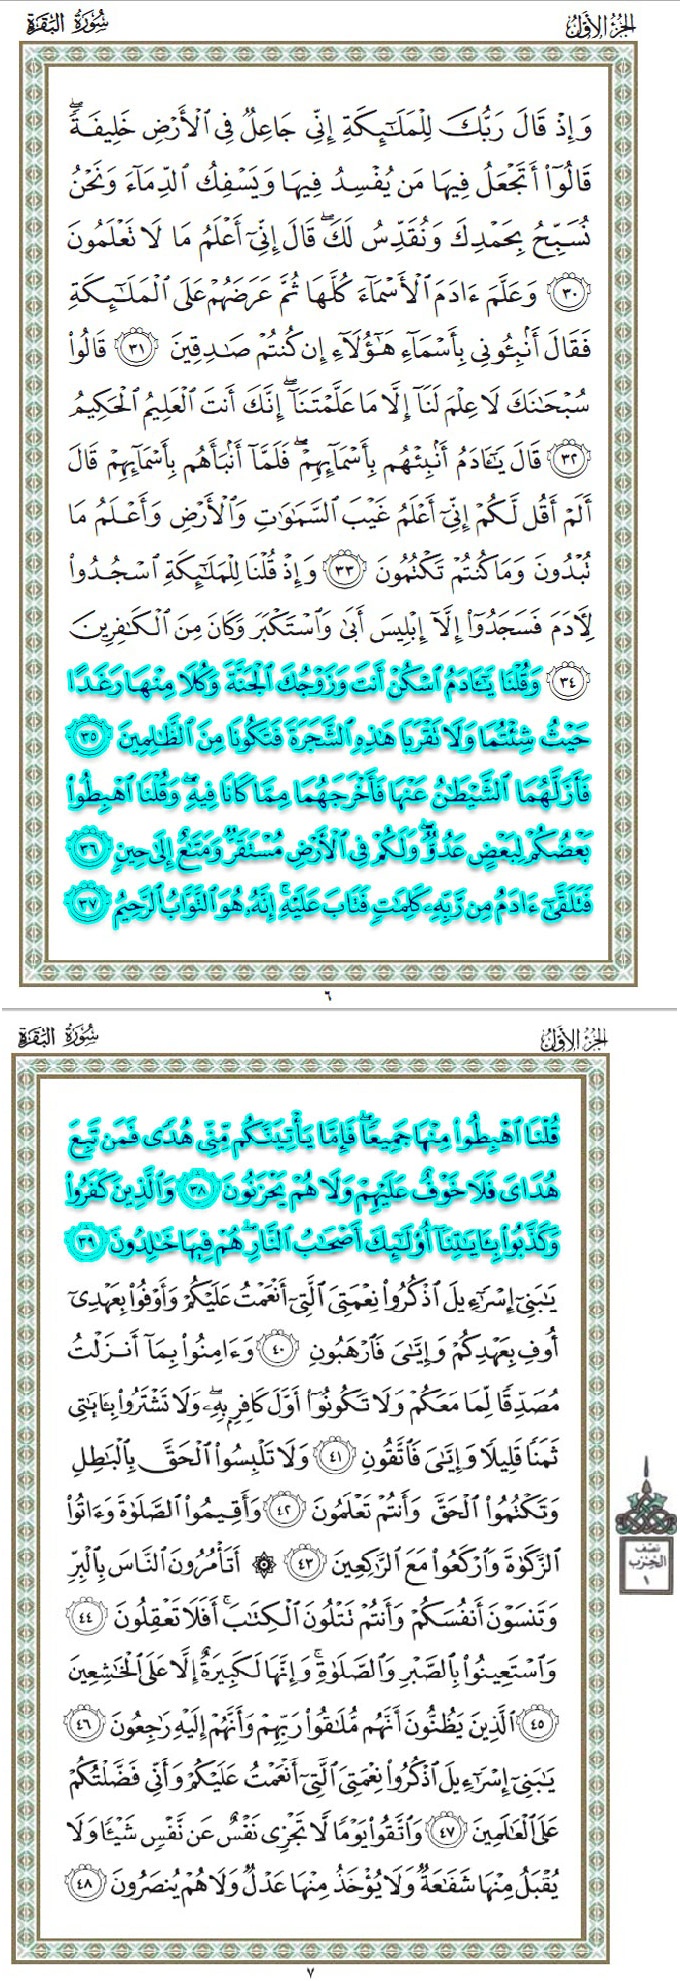 الجزء الأول سورة البقرة
وَإِذْ قَالَ رَبُّكَ لِلْمَلَٰٓئِكَةِ إِنِّى جَاعِلٌ فِى ٱلْأَرْضِ خَلِيفَةً ۖ
قَالُوٓا۟ أَتَجْعَلُ فِيهَا مَن يُفْسِدُ فِيهَا وَيَسْفِكُ ٱلدِّمَآءَ وَنَحْنُ
نُسَبِّحُ بِحَمْدِكَ وَنُقَدِّسُ لَكَ ۖ قَالَ إِنِّىٓ أَعْلَمُ مَا لَا تَعْلَمُونَ
٣٠ وَعَلَّمَ ءَادَمَ ٱلْأَسْمَآءَ كُلَّهَا ثُمَّ عَرَضَهُمْ عَلَى ٱلْمَلَٰٓئِكَةِ
فَقَالَ أَنۢبِـُٔونِى بِأَسْمَآءِ هَٰٓؤُلَآءِ إِن كُنتُمْ صَٰدِقِينَ ٣١ قَالُوا۟
سُبْحَٰنَكَ لَا عِلْمَ لَنَآ إِلَّا مَا عَلَّمْتَنَآ ۖ إِنَّكَ أَنتَ ٱلْعَلِيمُ ٱلْحَكِيمُ
٣٢ قَالَ يَٰٓـَٔادَمُ أَنۢبِئْهُم بِأَسْمَآئِهِمْ ۖ فَلَمَّآ أَنۢبَأَهُم بِأَسْمَآئِهِمْ قَالَ
أَلَمْ أَقُل لَّكُمْ إِنِّىٓ أَعْلَمُ غَيْبَ ٱلسَّمَٰوَٰتِ وَٱلْأَرْضِ وَأَعْلَمُ مَا
تُبْدُونَ وَمَا كُنتُمْ تَكْتُمُونَ ٣٣ وَإِذْ قُلْنَا لِلْمَلَٰٓئِكَةِ ٱسْجُدُوا۟
لِـَٔادَمَ فَسَجَدُوٓا۟ إِلَّآ إِبْلِيسَ أَبَىٰ وَٱسْتَكْبَرَ وَكَانَ مِنَ ٱلْكَٰفِرِينَ
٣٤ وَقُلْنَا يَٰٓـَٔادَمُ ٱسْكُنْ أَنتَ وَزَوْجُكَ ٱلْجَنَّةَ وَكُلَا مِنْهَا رَغَدًا
حَيْثُ شِئْتُمَا وَلَا تَقْرَبَا هَٰذِهِ ٱلشَّجَرَةَ فَتَكُونَا مِنَ ٱلظَّٰلِمِينَ ٣٥
فَأَزَلَّهُمَا ٱلشَّيْطَٰنُ عَنْهَا فَأَخْرَجَهُمَا مِمَّا كَانَا فِيهِ ۖ وَقُلْنَا ٱهْبِطُوا۟
بَعْضُكُمْ لِبَعْضٍ عَدُوٌّ ۖ وَلَكُمْ فِى ٱلْأَرْضِ مُسْتَقَرٌّ وَمَتَٰعٌ إِلَىٰ حِينٍ ٣٦
فَتَلَقَّىٰٓ ءَادَمُ مِن رَّبِّهِۦ كَلِمَٰتٍ فَتَابَ عَلَيْهِ ۚ إِنَّهُۥ هُوَ ٱلتَّوَّابُ ٱلرَّحِيمُ ٣٧
٦
الجزء الأول سورة البقرة
قُلْنَا ٱهْبِطُوا۟ مِنْهَا جَمِيعًا ۖ فَإِمَّا يَأْتِيَنَّكُم مِّنِّى هُدًى فَمَن تَبِعَ
هُدَاىَ فَلَا خَوْفٌ عَلَيْهِمْ وَلَا هُمْ يَحْزَنُونَ ٣٨ وَٱلَّذِينَ كَفَرُوا۟
وَكَذَّبُوا۟ بِـَٔايَٰتِنَآ أُو۟لَٰٓئِكَ أَصْحَٰبُ ٱلنَّارِ ۖ هُمْ فِيهَا خَٰلِدُونَ ٣٩
يَٰبَنِىٓ إِسْرَٰٓءِيلَ ٱذْكُرُوا۟ نِعْمَتِىَ ٱلَّتِىٓ أَنْعَمْتُ عَلَيْكُمْ وَأَوْفُوا۟ بِعَهْدِىٓ
أُوفِ بِعَهْدِكُمْ وَإِيَّٰىَ فَٱرْهَبُونِ ٤٠ وَءَامِنُوا۟ بِمَآ أَنزَلْتُ
مُصَدِّقًا لِّمَا مَعَكُمْ وَلَا تَكُونُوٓا۟ أَوَّلَ كَافِرٍۭ بِهِۦ ۖ وَلَا تَشْتَرُوا۟ بِـَٔايَٰتِى
ثَمَنًا قَلِيلًا وَإِيَّٰىَ فَٱتَّقُونِ ٤١ وَلَا تَلْبِسُوا۟ ٱلْحَقَّ بِٱلْبَٰطِلِ
وَتَكْتُمُوا۟ ٱلْحَقَّ وَأَنتُمْ تَعْلَمُونَ ٤٢ وَأَقِيمُوا۟ ٱلصَّلَوٰةَ وَءَاتُوا۟
ٱلزَّكَوٰةَ وَٱرْكَعُوا۟ مَعَ ٱلرَّٰكِعِينَ ٤٣ ۞ أَتَأْمُرُونَ ٱلنَّاسَ بِٱلْبِرِّ
وَتَنسَوْنَ أَنفُسَكُمْ وَأَنتُمْ تَتْلُونَ ٱلْكِتَٰبَ ۚ أَفَلَا تَعْقِلُونَ ٤٤
وَٱسْتَعِينُوا۟ بِٱلصَّبْرِ وَٱلصَّلَوٰةِ ۚ وَإِنَّهَا لَكَبِيرَةٌ إِلَّا عَلَى ٱلْخَٰشِعِينَ
٤٥ ٱلَّذِينَ يَظُنُّونَ أَنَّهُم مُّلَٰقُوا۟ رَبِّهِمْ وَأَنَّهُمْ إِلَيْهِ رَٰجِعُونَ ٤٦
يَٰبَنِىٓ إِسْرَٰٓءِيلَ ٱذْكُرُوا۟ نِعْمَتِىَ ٱلَّتِىٓ أَنْعَمْتُ عَلَيْكُمْ وَأَنِّى فَضَّلْتُكُمْ
عَلَى ٱلْعَٰلَمِينَ ٤٧ وَٱتَّقُوا۟ يَوْمًا لَّا تَجْزِى نَفْسٌ عَن نَّفْسٍ شَيْـًٔا وَلَا
يُقْبَلُ مِنْهَا شَفَٰعَةٌ وَلَا يُؤْخَذُ مِنْهَا عَدْلٌ وَلَا هُمْ يُنصَرُونَ ٤٨
نصف
الحزب
١
٧